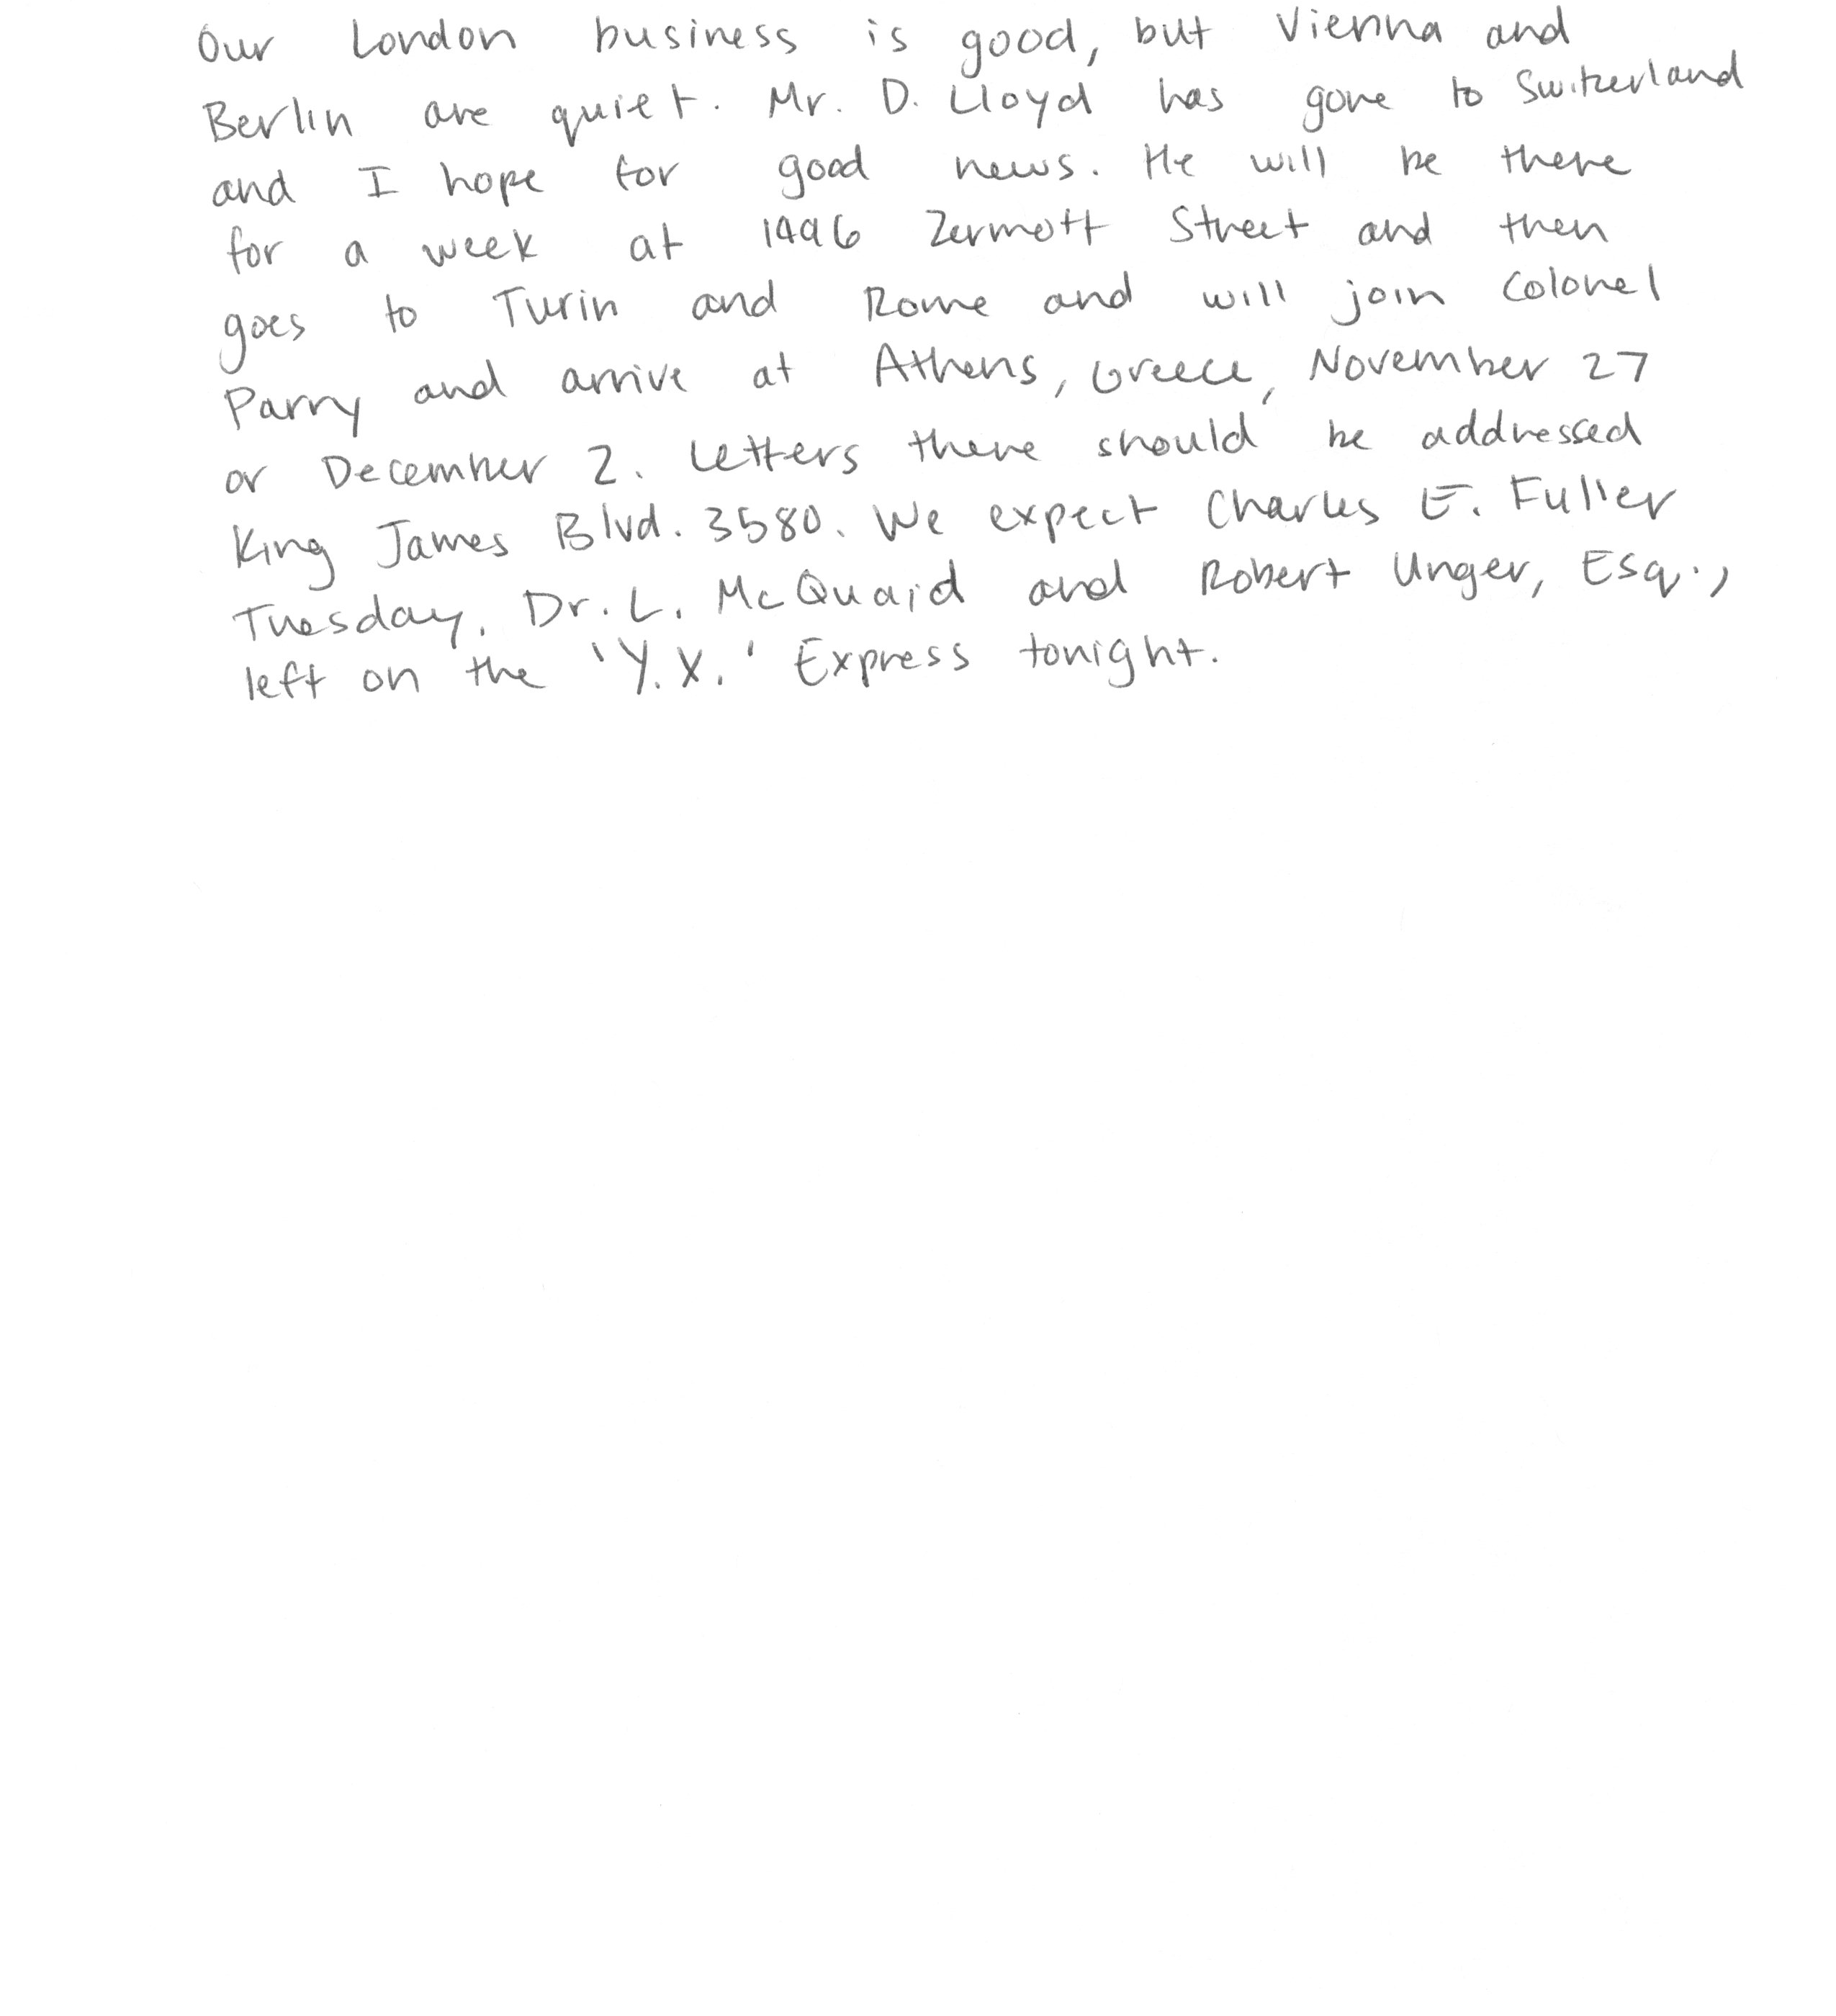 Our London business is good, but Vienna and
Berlin are quiet. Mr. D. Lloyd has gone to Switzerland
and I hope for good news. He will be there
for a week at 1496 Zermott Street and then
goes to Turin and Rome and will join Colonel
Parry and arrive at Athens, Greece, November 27
or December 2. Letters there should be addressed
King James Blvd. 3580. We expect Charles E. Fuller
Tuesday. Dr. L. McQuaid and Robert Unger, Esq.,
left on the 'Y.X.' Express tonight.